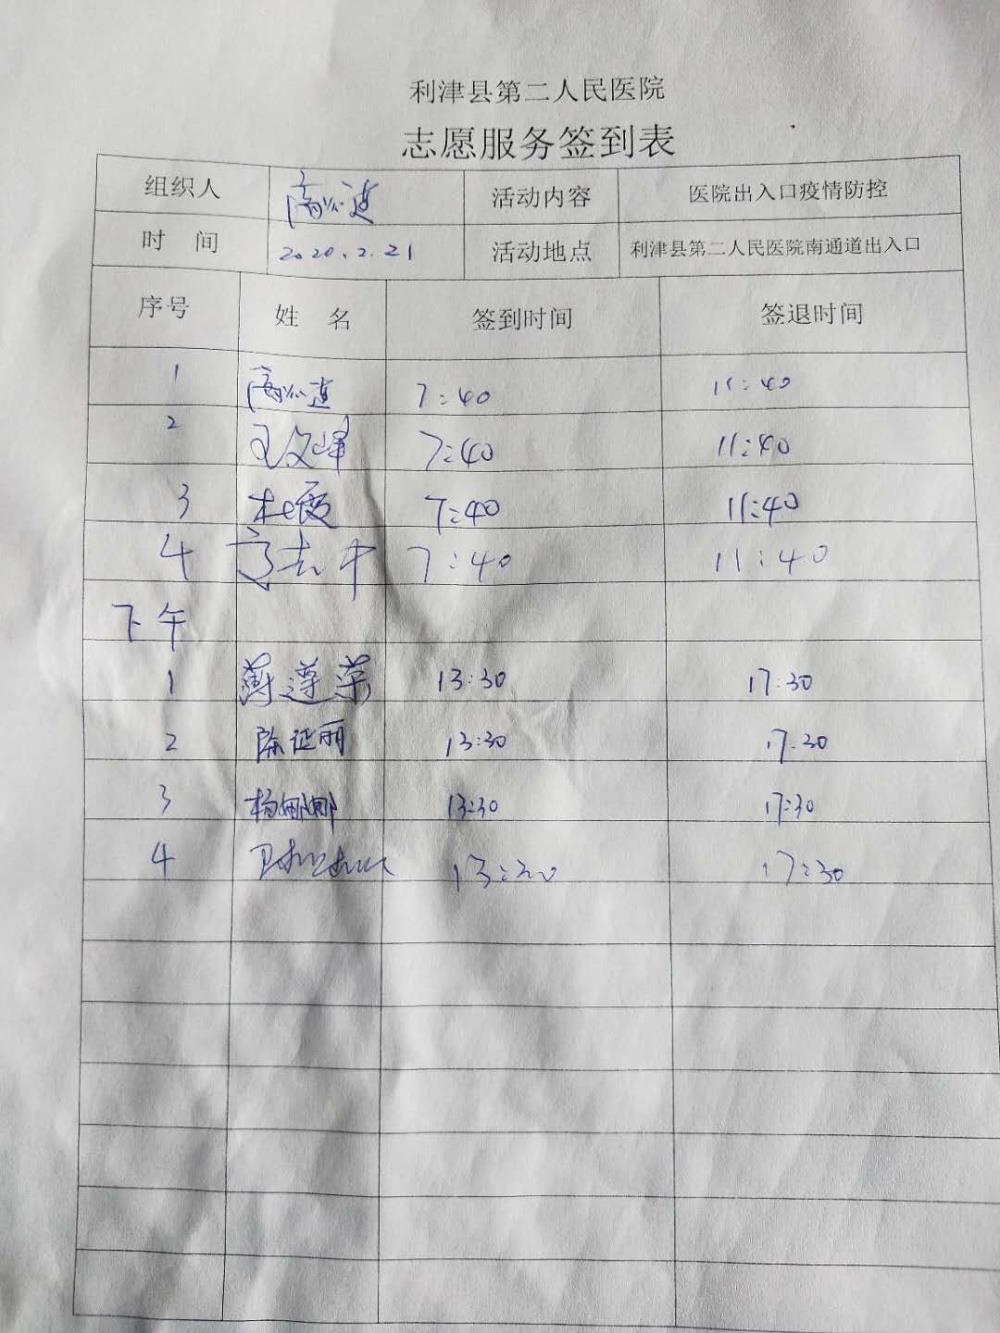 利津县第二人民医院
志愿服务签到表
组织人 活动内容 医院出入口疫情防控
时 间 2020.2.21 活动地点 利津县第二人民医院南通道出入口
序号 姓 名 签到时间 签退时间
1 7:40 11:40
2 王文峰 7:40 11:40
3 杜霞 7:40 11:40
4 7:40 11:40
下午
1 薄遵荣 13:30 17:30
2 陈延丽 13:30 17:30
3 杨娜娜 13:30 17:30
4 13:30 17:30